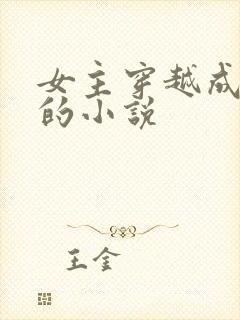 女主穿越成
的小说
王金